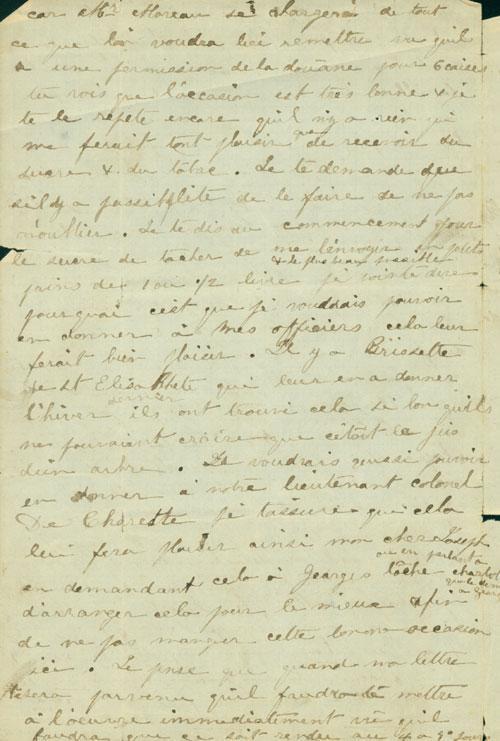 car Mr Moreau se chargera de tout
ce que l'on voudra lui remettre vu quil
a une permission de la douane pour 6 caises
tu vois que l'occasion est tres bonne & je
te le répète encore quil ny a rien qui
me ferait tout plaisir que de recevoir du
sucre & du tabac. Je te demande que
sil y a possibilité de le faire de ne pas
m'oublier. Je te dis au commencement pour
le sucre de tacher de me l'envoyer en petits
& le plus beau possible
pains de 1 ou 1/2 livre je vointe dire
pourquoi c'est que je voudrais pouvoir
en donner à mes officiers cela leur
ferait bien plaisir. Il y a Brissette
de St Elisabhete qui leur en a donner
dernier
l'hiver ils ont trouvé cela si bon quils
ne pouvaient croire que c'était le jus
d'un arbre. Je voudrais aussi pouvoir
en donner à notre lieutenant colonel
De Charette je t'assure que cela
lui fera plaisir ainsi mon cher Joseph
ou en parlant à
en demandant cela à Georges tâche
d'arranger cela pour le mieux afin
de ne pas manquer cette bonne occasion
ici. Je pense que quand ma lettre
tesera parvenu quil faudra te mettre
à l'oeuvre immédiatement vu quil
faudra que ça soit rendu au